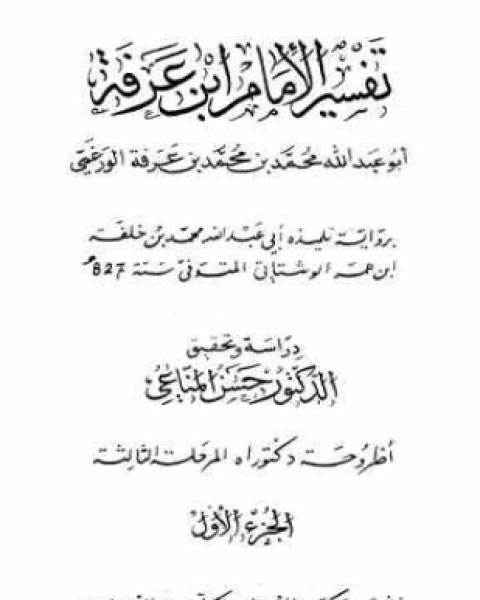 تَفْسِيرُ الإِمَامِ ابْن عَرَفَة
أبو عبد الله محمّد بن محمّد بن عرفة الورغمّي
برواية تلميذه أبي عبد الله محمد بن خلفة
ابن عمر الوشتاتي المتوفى سنة 827 هـ
دراسة وتحقيق
الدكتور حسن المناعي
أطروحة دكتوراه المرحلة الثالثة
الجزء الأول